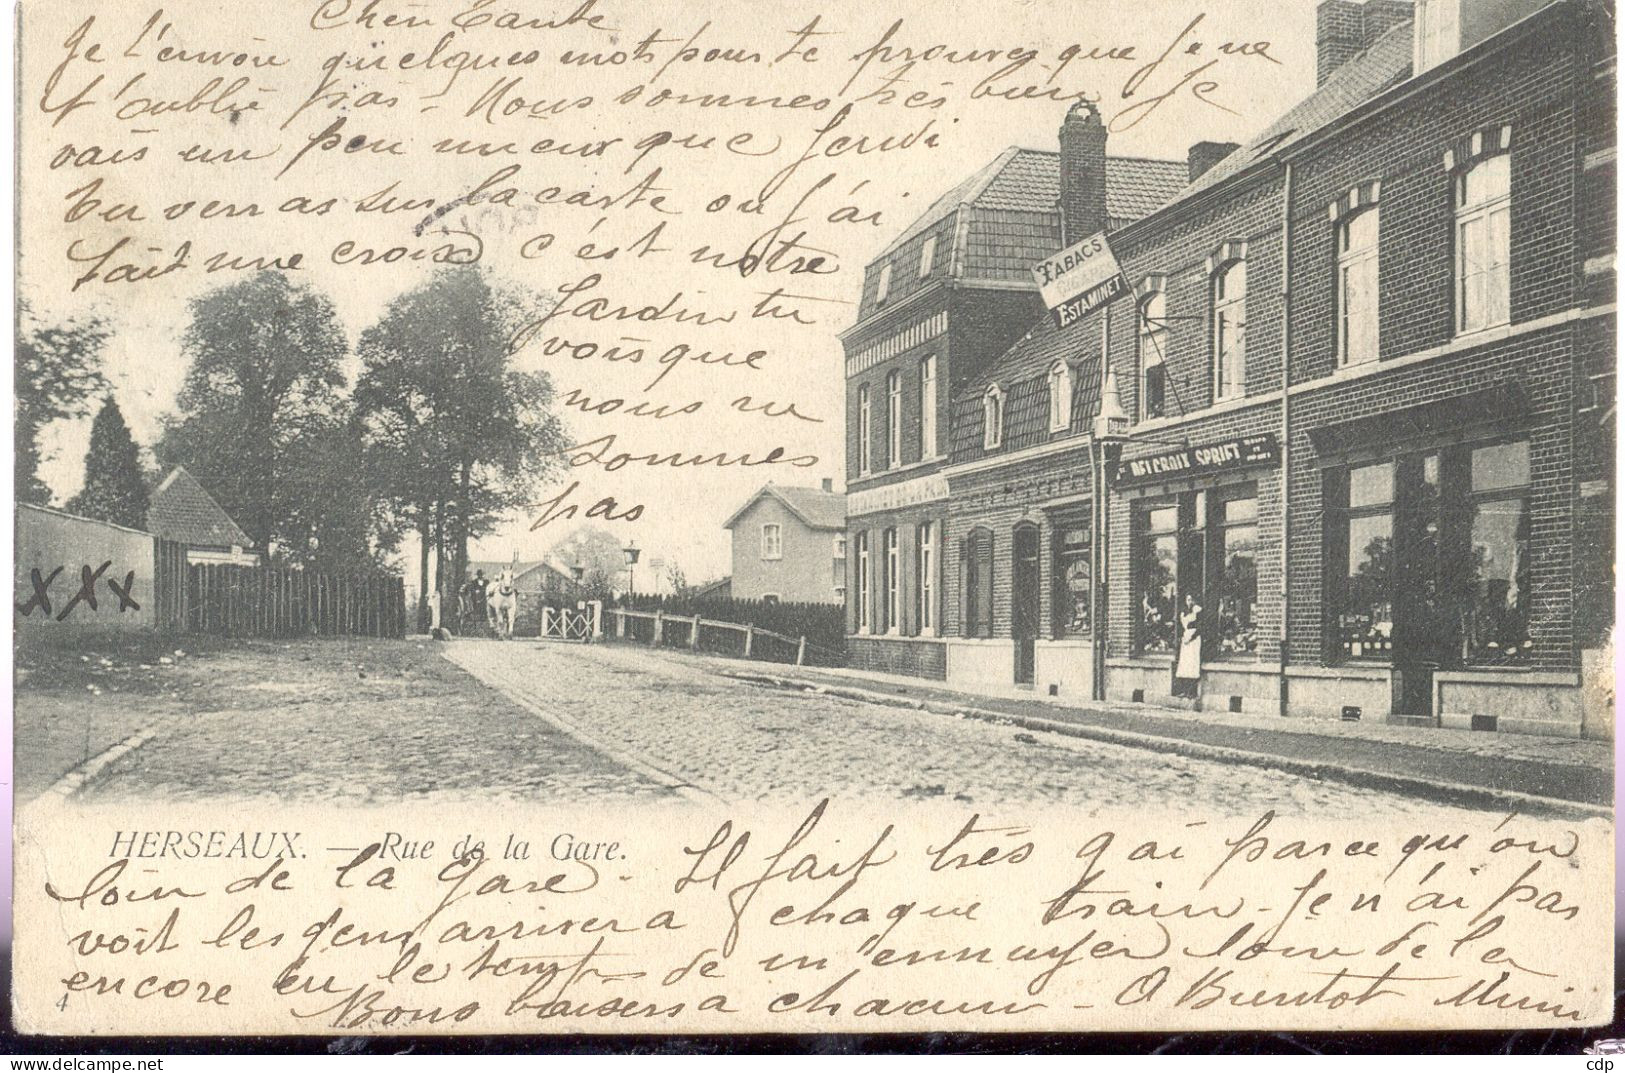 Chère Tante
Je t'envoie quelques mots pour te prouver que Je ne
t'oublie pas - Nous sommes très bien Je
vais un peu mieux que Jeudi
tu verras sur la carte ou J'ai
fait une croix c'est notre
Jardin tu
vois que
nous ne
sommes
pas
TABACS
ESTAMINET
DELCROIX SPRIET
XXX
HERSEAUX. — Rue de la Gare.
loin de la gare. Il fait très gai parce qu'on
voit les gens arriver a chaque train - Je n'ai pas
encore eu le temps de m'ennuyer loin de la
Bons baisers a chacun - A Bientot Mimi
4
cdp